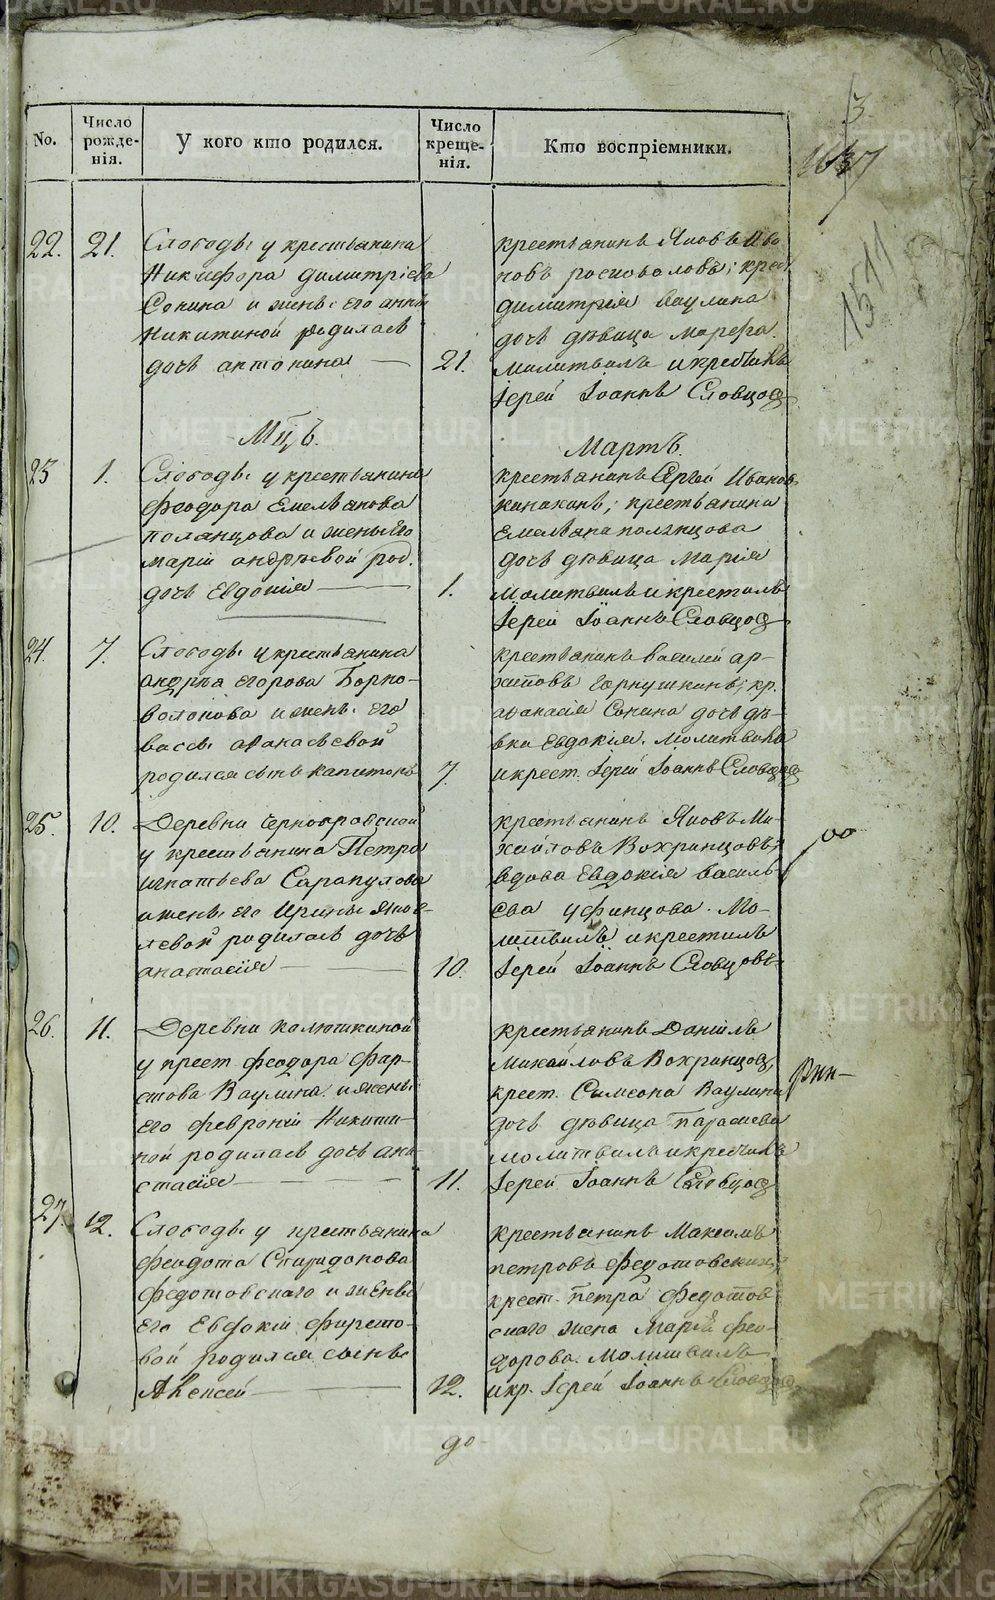 METRIKI.GASO-URAL.RU
No.
Число рожде-нія.
У кого кто родился.
Число креще-нія.
Кто воспріемники.
3
1511
22. 21.
Слободы у крестьянина
Никифора Димитріева
Сонина и жены его анны
Никитиной родилась
дочь антонина
21.
крестьянинъ Яковъ Ива
новъ ; крест
димитрія Ваулина
дочь дѣвица марѳа
молитвилъ и крестилъ
Іерей Іоаннъ Словцов
Мцъ
Мартъ.
23 1.
Слободы у крестьянина
Феодора Емельянова
и жены его
маріи андреевой род.
дочь Евдокія
1.
крестьянинъ Сергей Иванов
; крестьянина
Емельяна
дочь дѣвица Марія
молитвилъ и крестилъ
Іерей Іоаннъ Словцов
24. 7.
Слободы у крестьянина
андрея егорова Борно-
волокова и жены его
вассы афанасьевой
родился сынъ капитонъ
7.
крестьянинъ василей ар-
хиповъ Горнушкинъ; кр.
афанасія Сонина дочь дѣ-
вка евдокія. молитвилъ
и крест. Іерей Іоаннъ Словцов
25. 10.
Деревни Чернояровской
у крестьянина Петра
игнатьева Сарапулова
и жены его Ирины Яков-
левой родилась дочь
анастасія
10.
крестьянинъ Яковъ Ми-
хайловъ Вохринцовъ;
вдова Евдокія василь-
ева уфинцова. Мо-
литвилъ и крестилъ
Іерей Іоаннъ Словцовъ.
26. 11.
Деревни калюткиной
у крест феодора Фар-
стова Ваулина и жены
его февроніи Никити-
ной родилась дочь ана-
стасія
11.
крестьянинъ Даніилъ
михайловъ Вохринцов
крест. Сымеона Ваулина
дочь дѣвица Парасковья
молитвилъ и крестилъ
Іерей Іоаннъ Словцов
27. 12.
Слободы у крестьянина
феодота Спиридонова
федотовскаго и жены
его Евфиміи
вой родился сынъ
Алексей
12.
крестьянинъ Максимъ
петровъ федотовскихъ
крест. петра федотов
скаго жена Марія фео-
дорова. молитвилъ
и кр. Іерей Іоаннъ Словцов